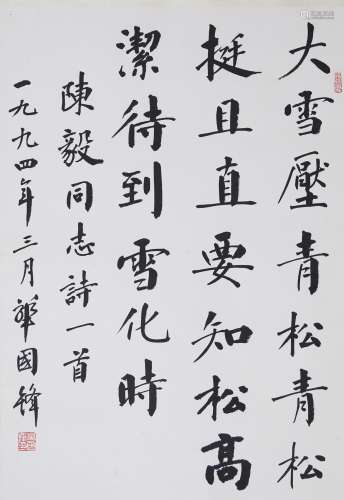 大雪壓青松青松
挺且直要知松高
潔待到雪化時
陳毅同志詩一首
一九九四年三月華國鋒